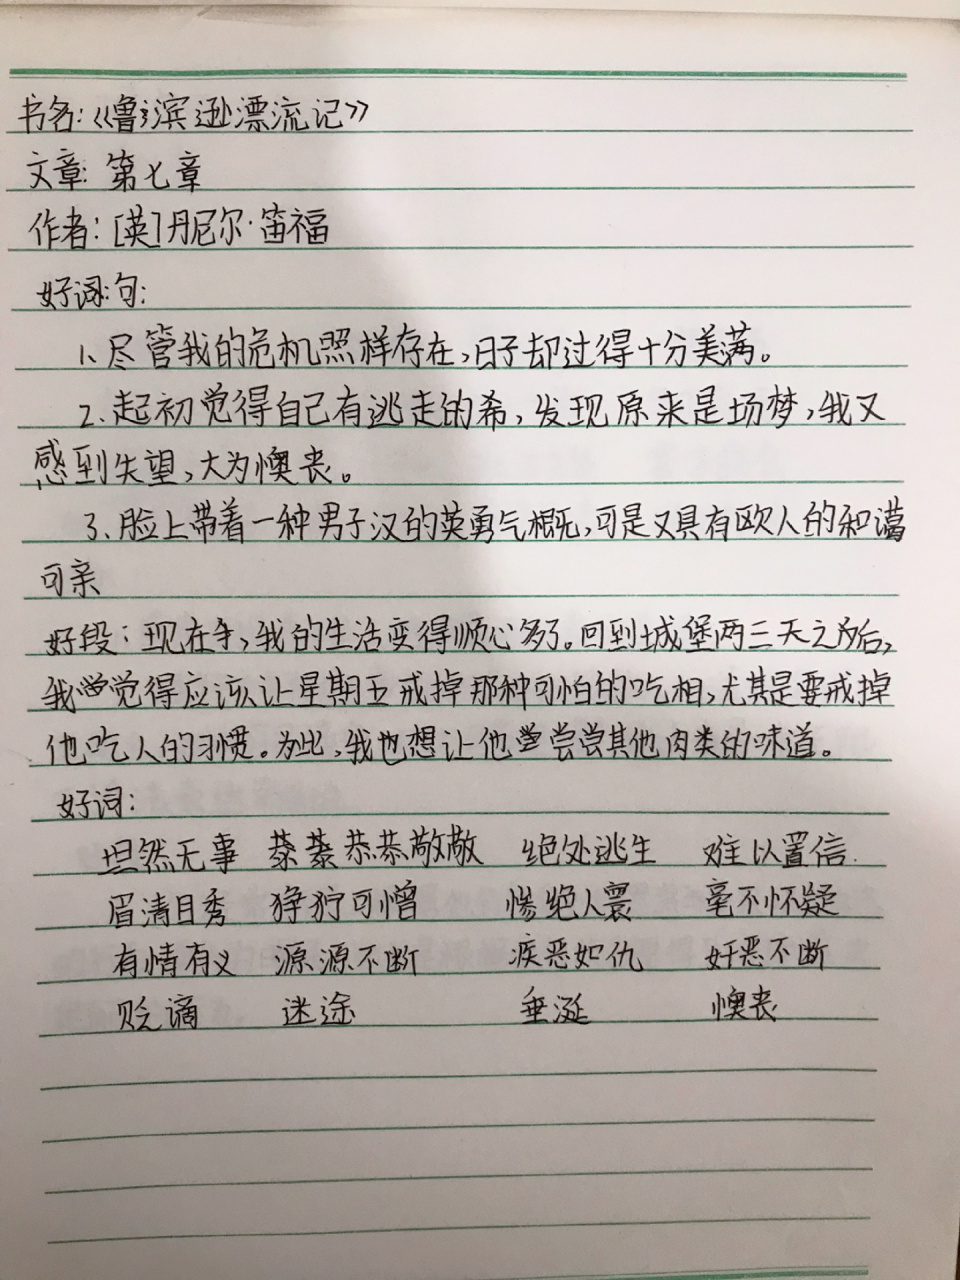 书名:《鲁滨逊漂流记》
文章:第七章
作者:[英]丹尼尔·笛福
好词:句:
1、尽管我的危机照样存在,日子却过得十分美满。
2、起初觉得自己有逃走的希,发现原来是场梦,我又
感到失望,大为懊丧。
3、脸上带着一种男子汉的英勇气概,可是又具有欧人的和蔼
可亲
好段:现在,我的生活变得顺心多了。回到城堡两三天之后,
我觉得应该让星期五戒掉那种可怕的吃相,尤其是要戒掉
他吃人的习惯。为此,我也想让他尝尝其他肉类的味道。
好词:
坦然无事 恭恭敬敬 绝处逃生 难以置信.
眉清目秀 狰狞可憎 惨绝人寰 毫不怀疑
有情有义 源源不断 疾恶如仇 奸恶不断
贬谪 迷途 垂涎 懊丧